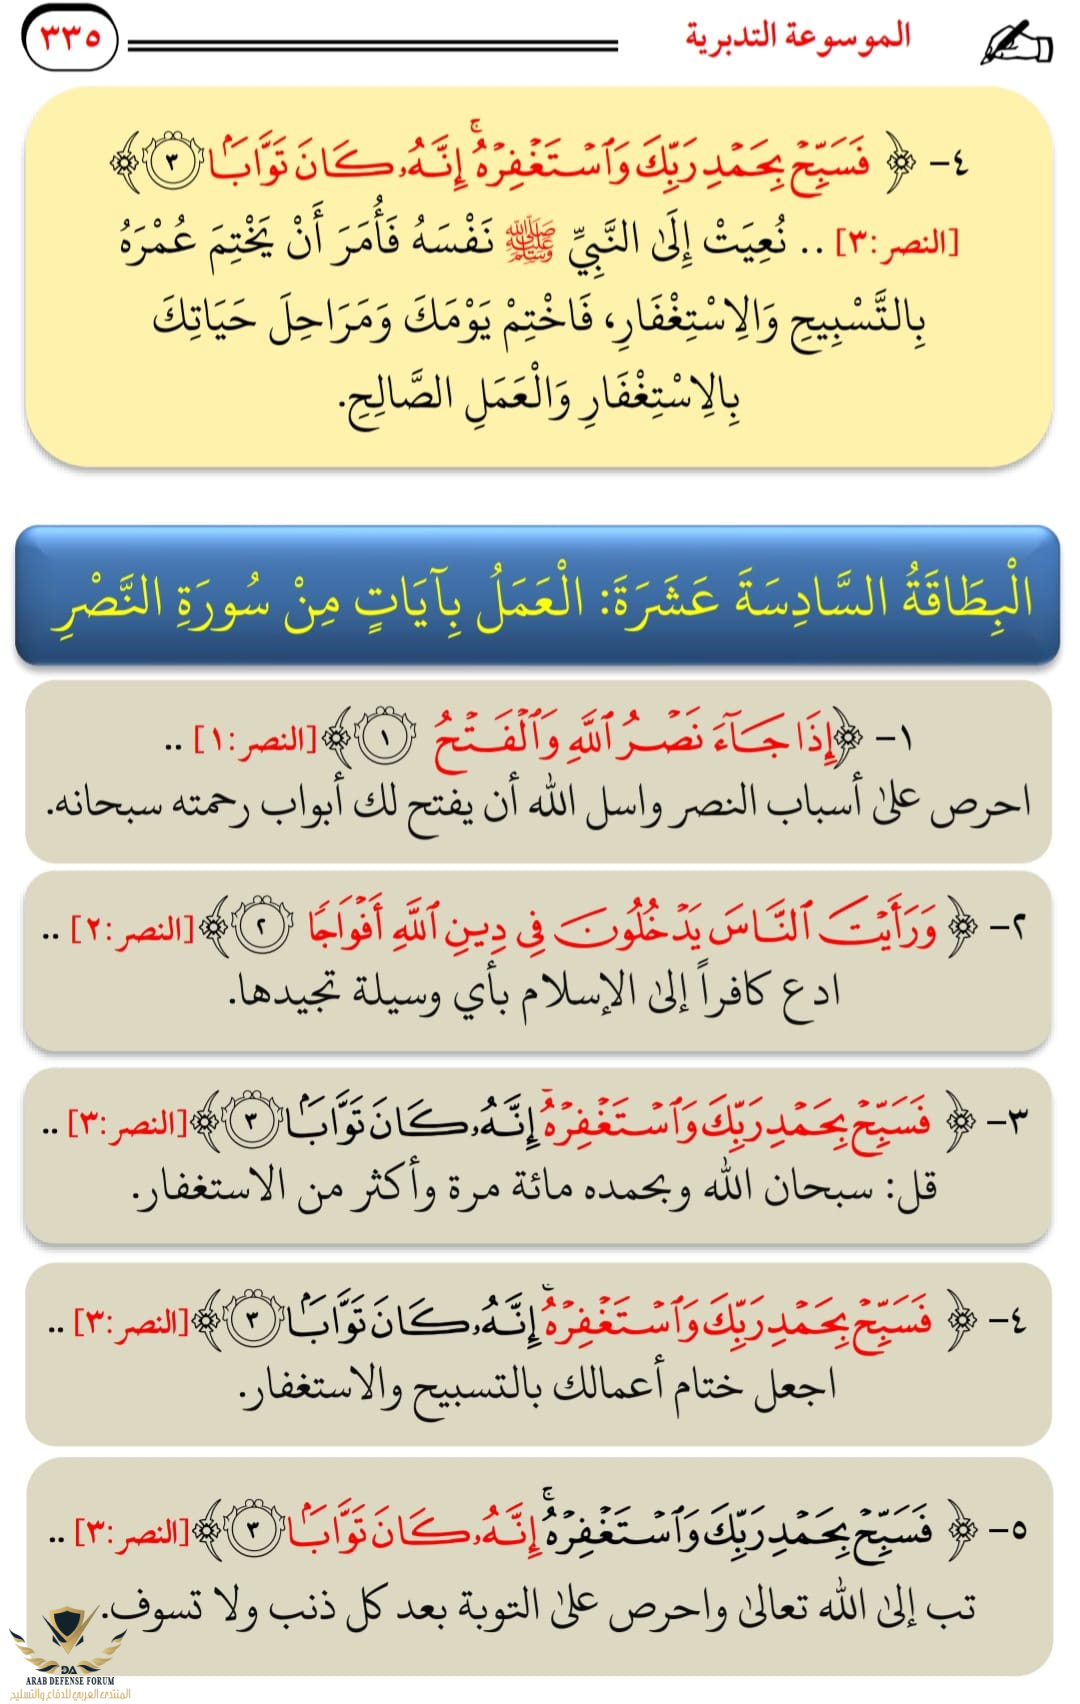 الموسوعة التدبرية
٣٣٥
٤- ﴿ فَسَبِّحْ بِحَمْدِ رَبِّكَ وَٱسْتَغْفِرْهُ ۚ إِنَّهُۥ كَانَ تَوَّابًۢا ٣ ﴾
[النصر:٣] .. نُعِيَتْ إِلَىٰ النَّبِيِّ ﷺ نَفْسَهُ فَأُمَرَ أَنْ يَخْتِمَ عُمْرَهُ
بِالتَّسْبِيحِ وَالِاسْتِغْفَارِ، فَاخْتِمْ يَوْمَكَ وَمَرَاحِلَ حَيَاتِكَ
بِالِاسْتِغْفَارِ وَالْعَمَلِ الصَّالِحِ.
الْبِطَاقَةُ السَّادِسَةَ عَشَرَةَ: الْعَمَلُ بِآيَاتٍ مِنْ سُورَةِ النَّصْرِ
١- ﴿إِذَا جَآءَ نَصْرُ ٱللَّهِ وَٱلْفَتْحُ ١ ﴾[النصر:١] ..
احرص علىٰ أسباب النصر واسل الله أن يفتح لك أبواب رحمته سبحانه.
٢- ﴿ وَرَأَيْتَ ٱلنَّاسَ يَدْخُلُونَ فِي دِينِ ٱللَّهِ أَفْوَاجًا ٢ ﴾[النصر:٢] ..
ادع كافراً إلىٰ الإسلام بأي وسيلة تجيدها.
٣- ﴿ فَسَبِّحْ بِحَمْدِ رَبِّكَ وَٱسْتَغْفِرْهُ ۚ إِنَّهُۥ كَانَ تَوَّابًۢا ٣ ﴾[النصر:٣] ..
قل: سبحان الله وبحمده مائة مرة وأكثر من الاستغفار.
٤- ﴿ فَسَبِّحْ بِحَمْدِ رَبِّكَ وَٱسْتَغْفِرْهُ ۚ إِنَّهُۥ كَانَ تَوَّابًۢا ٣ ﴾[النصر:٣] ..
اجعل ختام أعمالك بالتسبيح والاستغفار.
٥- ﴿ فَسَبِّحْ بِحَمْدِ رَبِّكَ وَٱسْتَغْفِرْهُ ۚ إِنَّهُۥ كَانَ تَوَّابًۢا ٣ ﴾[النصر:٣] ..
تب إلىٰ الله تعالىٰ واحرص علىٰ التوبة بعد كل ذنب ولا تسوف.
DA
ARAB DEFENSE FORUM
المنتدى العربي للدفاع والتسليح